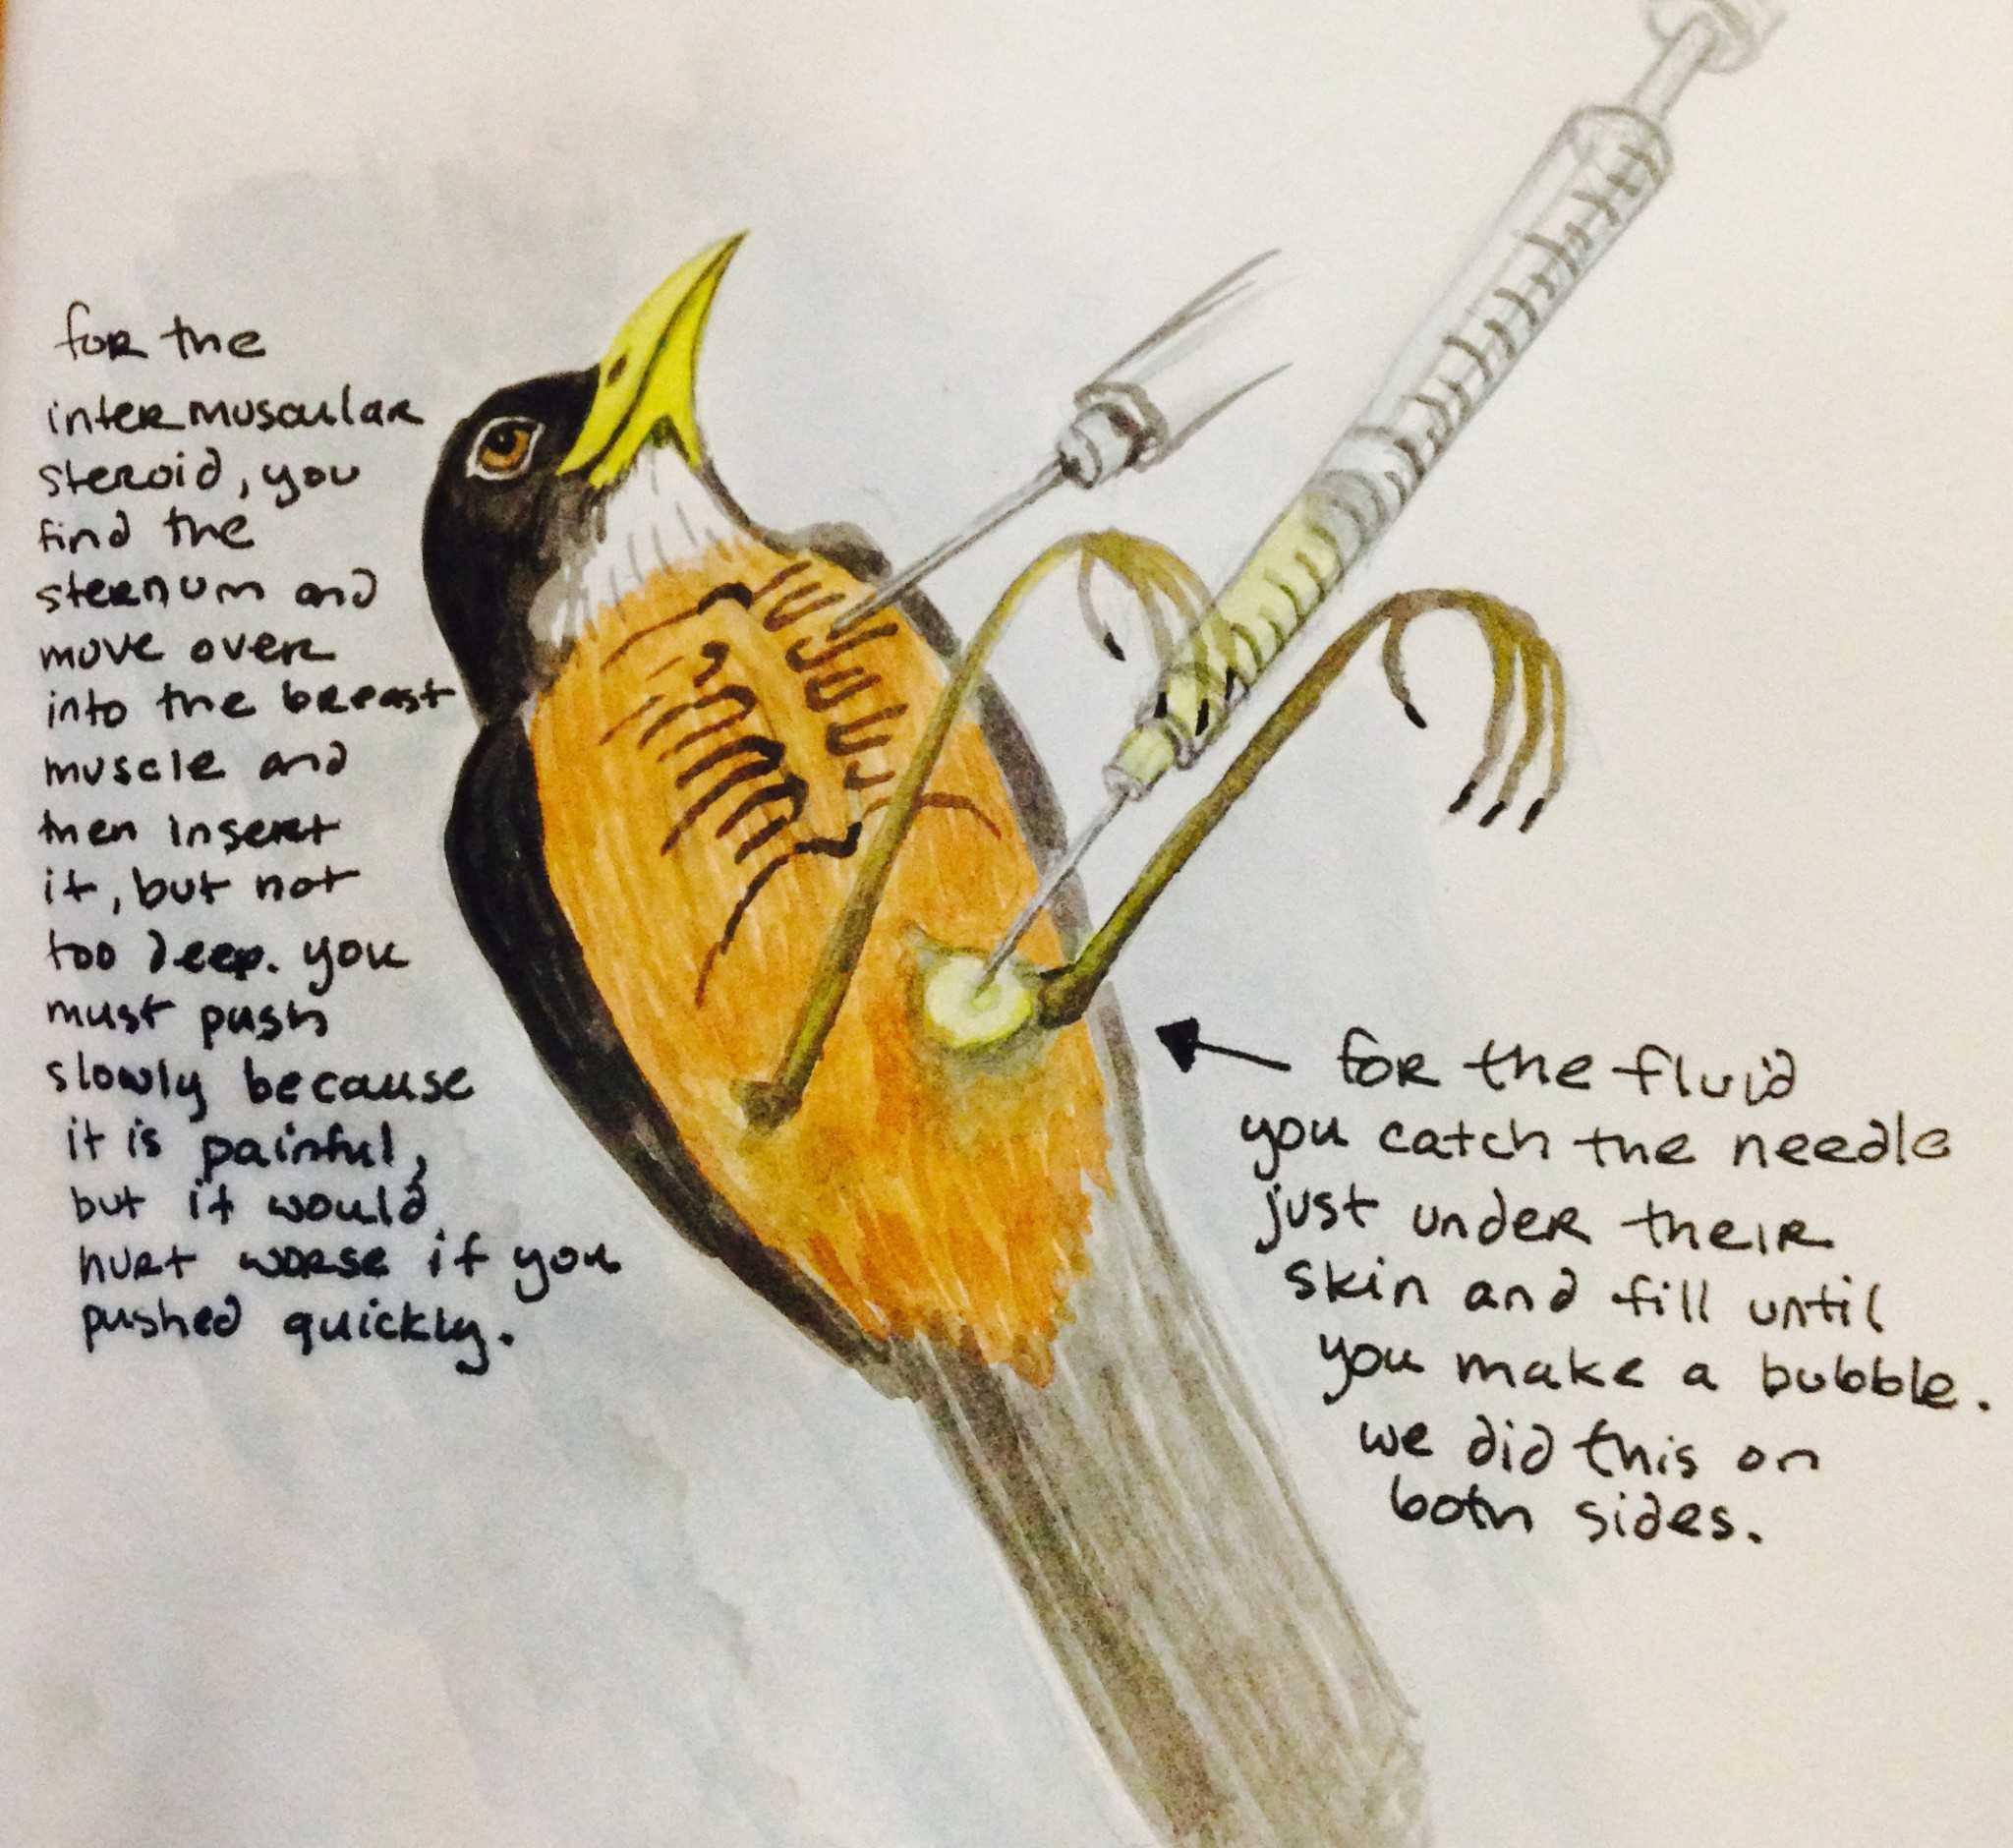 for the
intermuscular
steroid, you
find the
sternum and
move over
into the breast
muscle and
then insert
it, but not
too deep. you
must push
slowly because
it is painful,
but it would
hurt worse if you
pushed quickly.
for the fluid
you catch the needle
just under their
skin and fill until
you make a bubble.
we did this on
both sides.